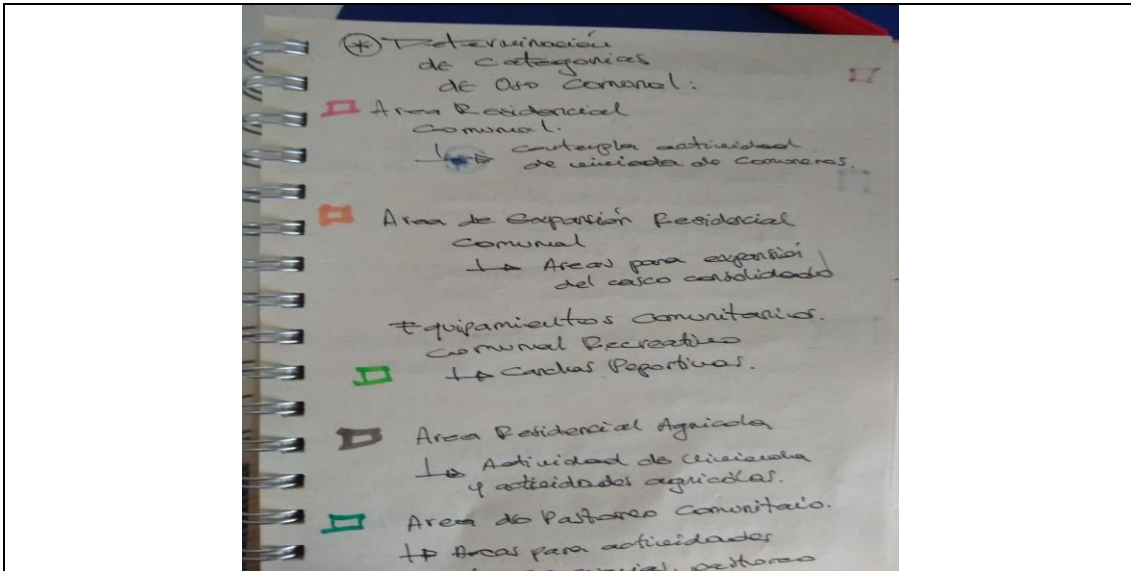 Determinación
de Categorías
de Uso Comunal:
Area Residencial
Comunal.
Contempla actividad
de vivienda de Comuneros.
Area de Expansión Residencial
Comunal
Areas para expansión
del casco consolidado
Equipamientos Comunitarios.
Comunal Recreativo
Canchas Deportivas.
Area Residencial Agricola
Actividad de vivienda
y actividades agricolas.
Area de Pastoreo Comunitario.
Areas para actividades
pastoreo